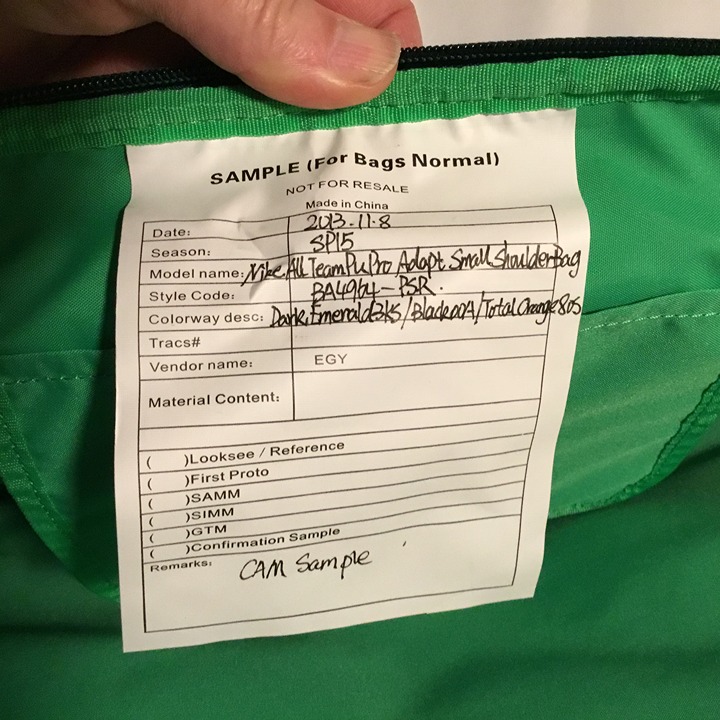 SAMPLE (For Bags Normal)
NOT FOR RESALE
Made in China
Date: 2013.11.8
Season: SP15
Model name: Nike All Team Pu Pro Adapt Small Shoulder Bag
Style Code: BA4964-PSR.
Colorway desc: Dark Emerald3K5/Black00A/Total Orange805
Tracs#
Vendor name: EGY
Material Content:
( )Looksee / Reference
( )First Proto
( )SAMM
( )SIMM
( )GTM
( )Confirmation Sample
Remarks: CAM Sample